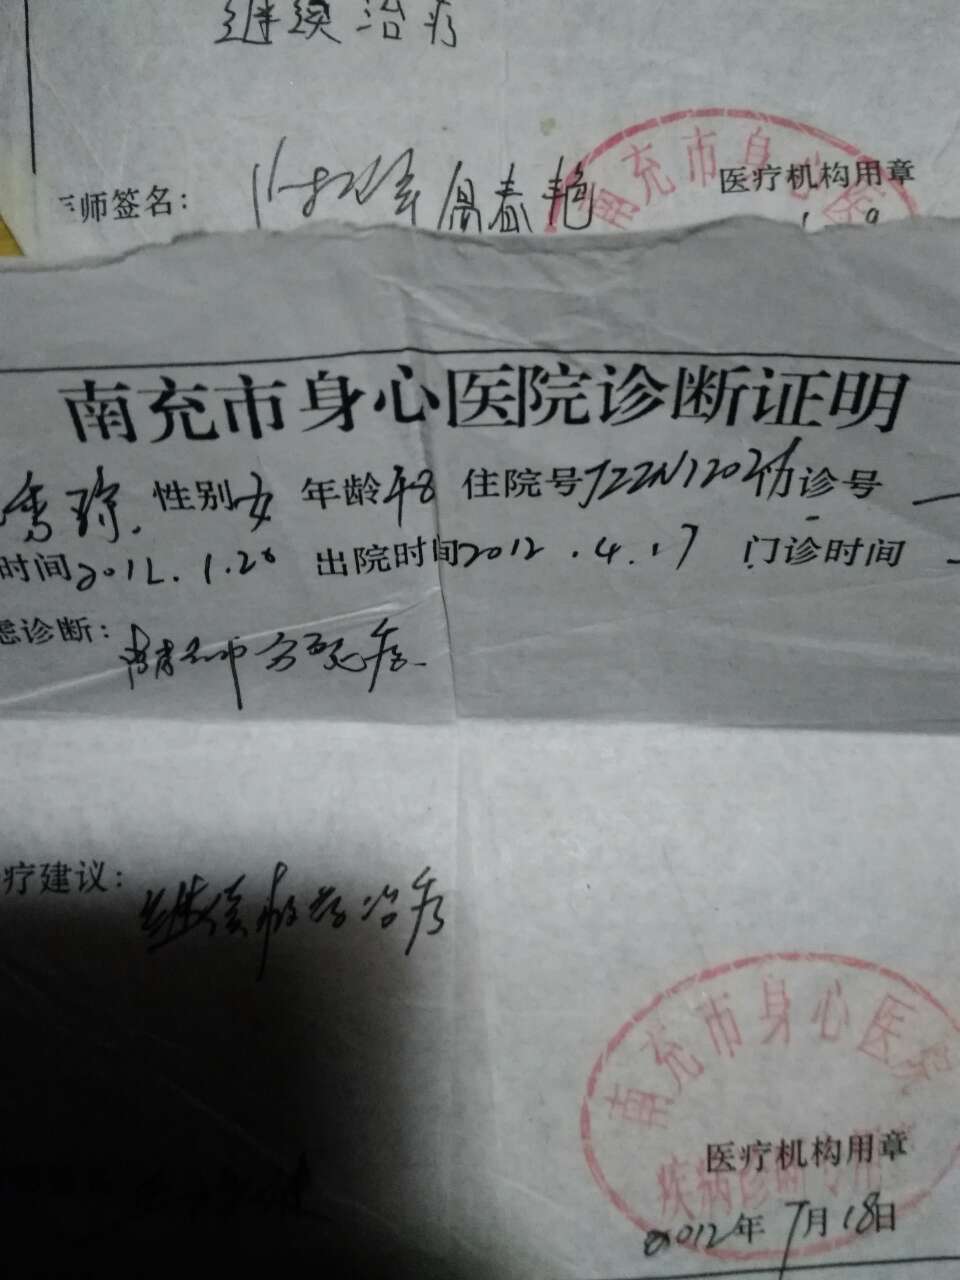 继续治疗
师签名： 周春艳 医疗机构用章
南充市身心医
南充市身心医院诊断证明
秀琼 性别女 年龄48 住院号JZZN1202 诊号
时间2012.1.20 出院时间2012.4.17 门诊时间
诊断：精神分裂症
疗建议：继续服药治疗
南充市身心医院
医疗机构用章
疾病诊断专用
2012年7月18日